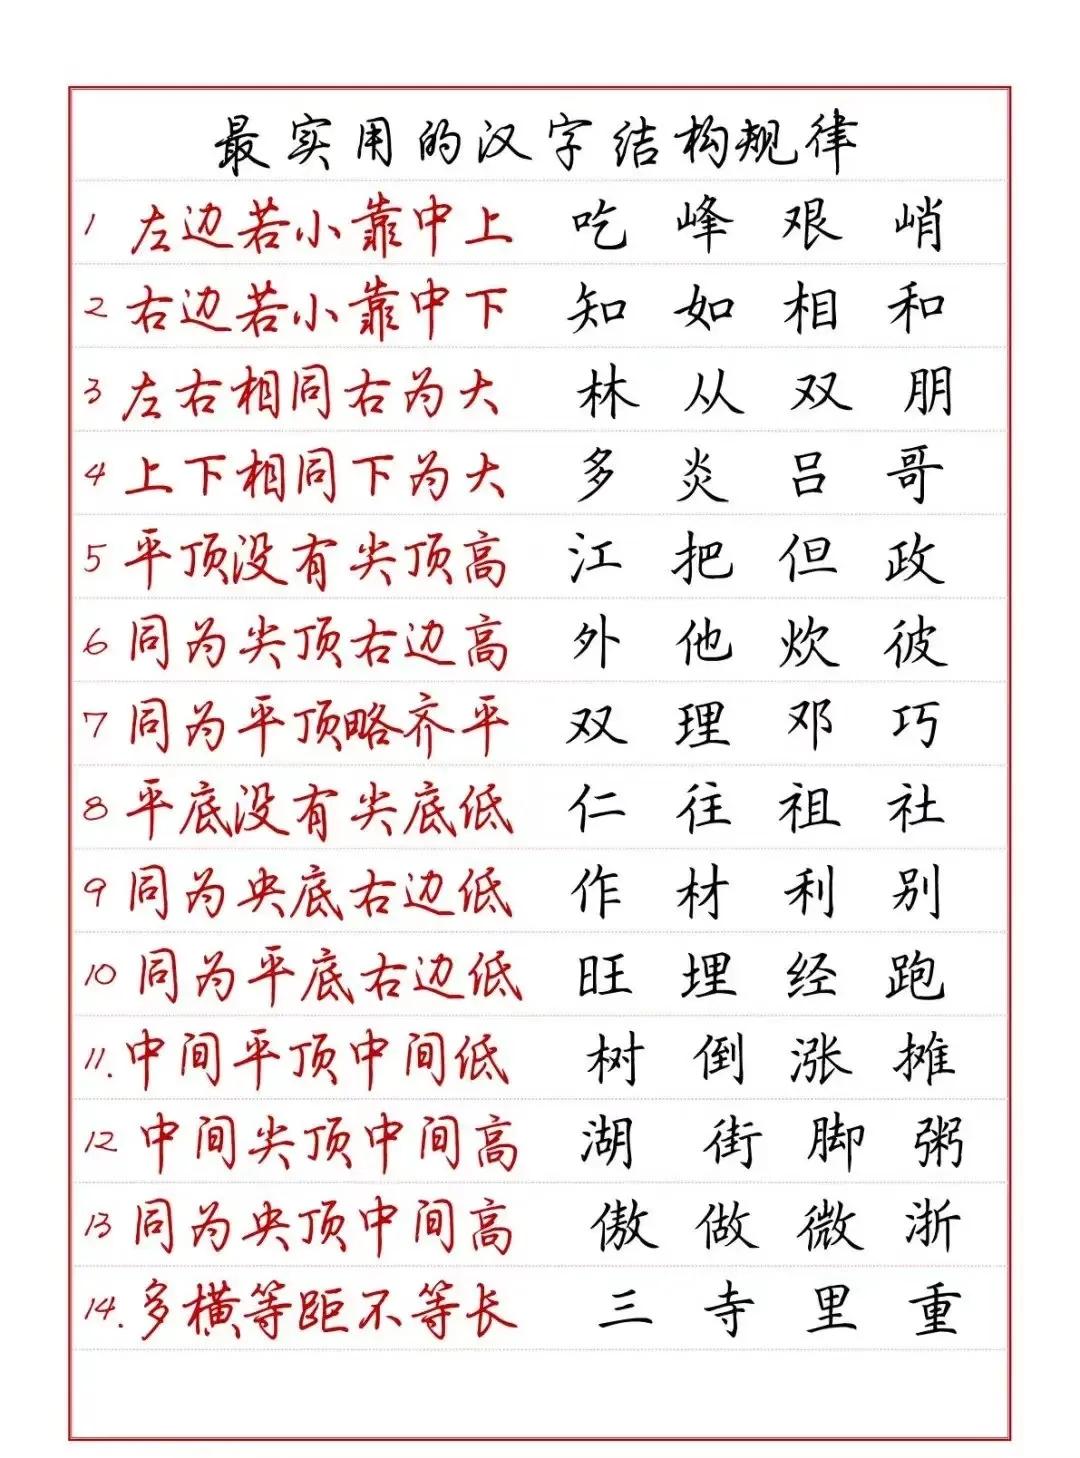 最实用的汉字结构规律
1 左边若小靠中上 吃 峰 艰 峭
2 右边若小靠中下 知 如 相 和
3 左右相同右为大 林 从 双 朋
4 上下相同下为大 多 炎 吕 哥
5 平顶没有尖顶高 江 把 但 政
6 同为尖顶右边高 外 他 炊 彼
7 同为平顶略齐平 双 理 邓 巧
8 平底没有尖底低 仁 往 祖 社
9 同为央底右边低 作 材 利 别
10 同为平底右边低 旺 埋 经 跑
11. 中间平顶中间低 树 倒 涨 摊
12 中间尖顶中间高 湖 街 脚 粥
13 同为央顶中间高 傲 做 微 浙
14. 多横等距不等长 三 寺 里 重